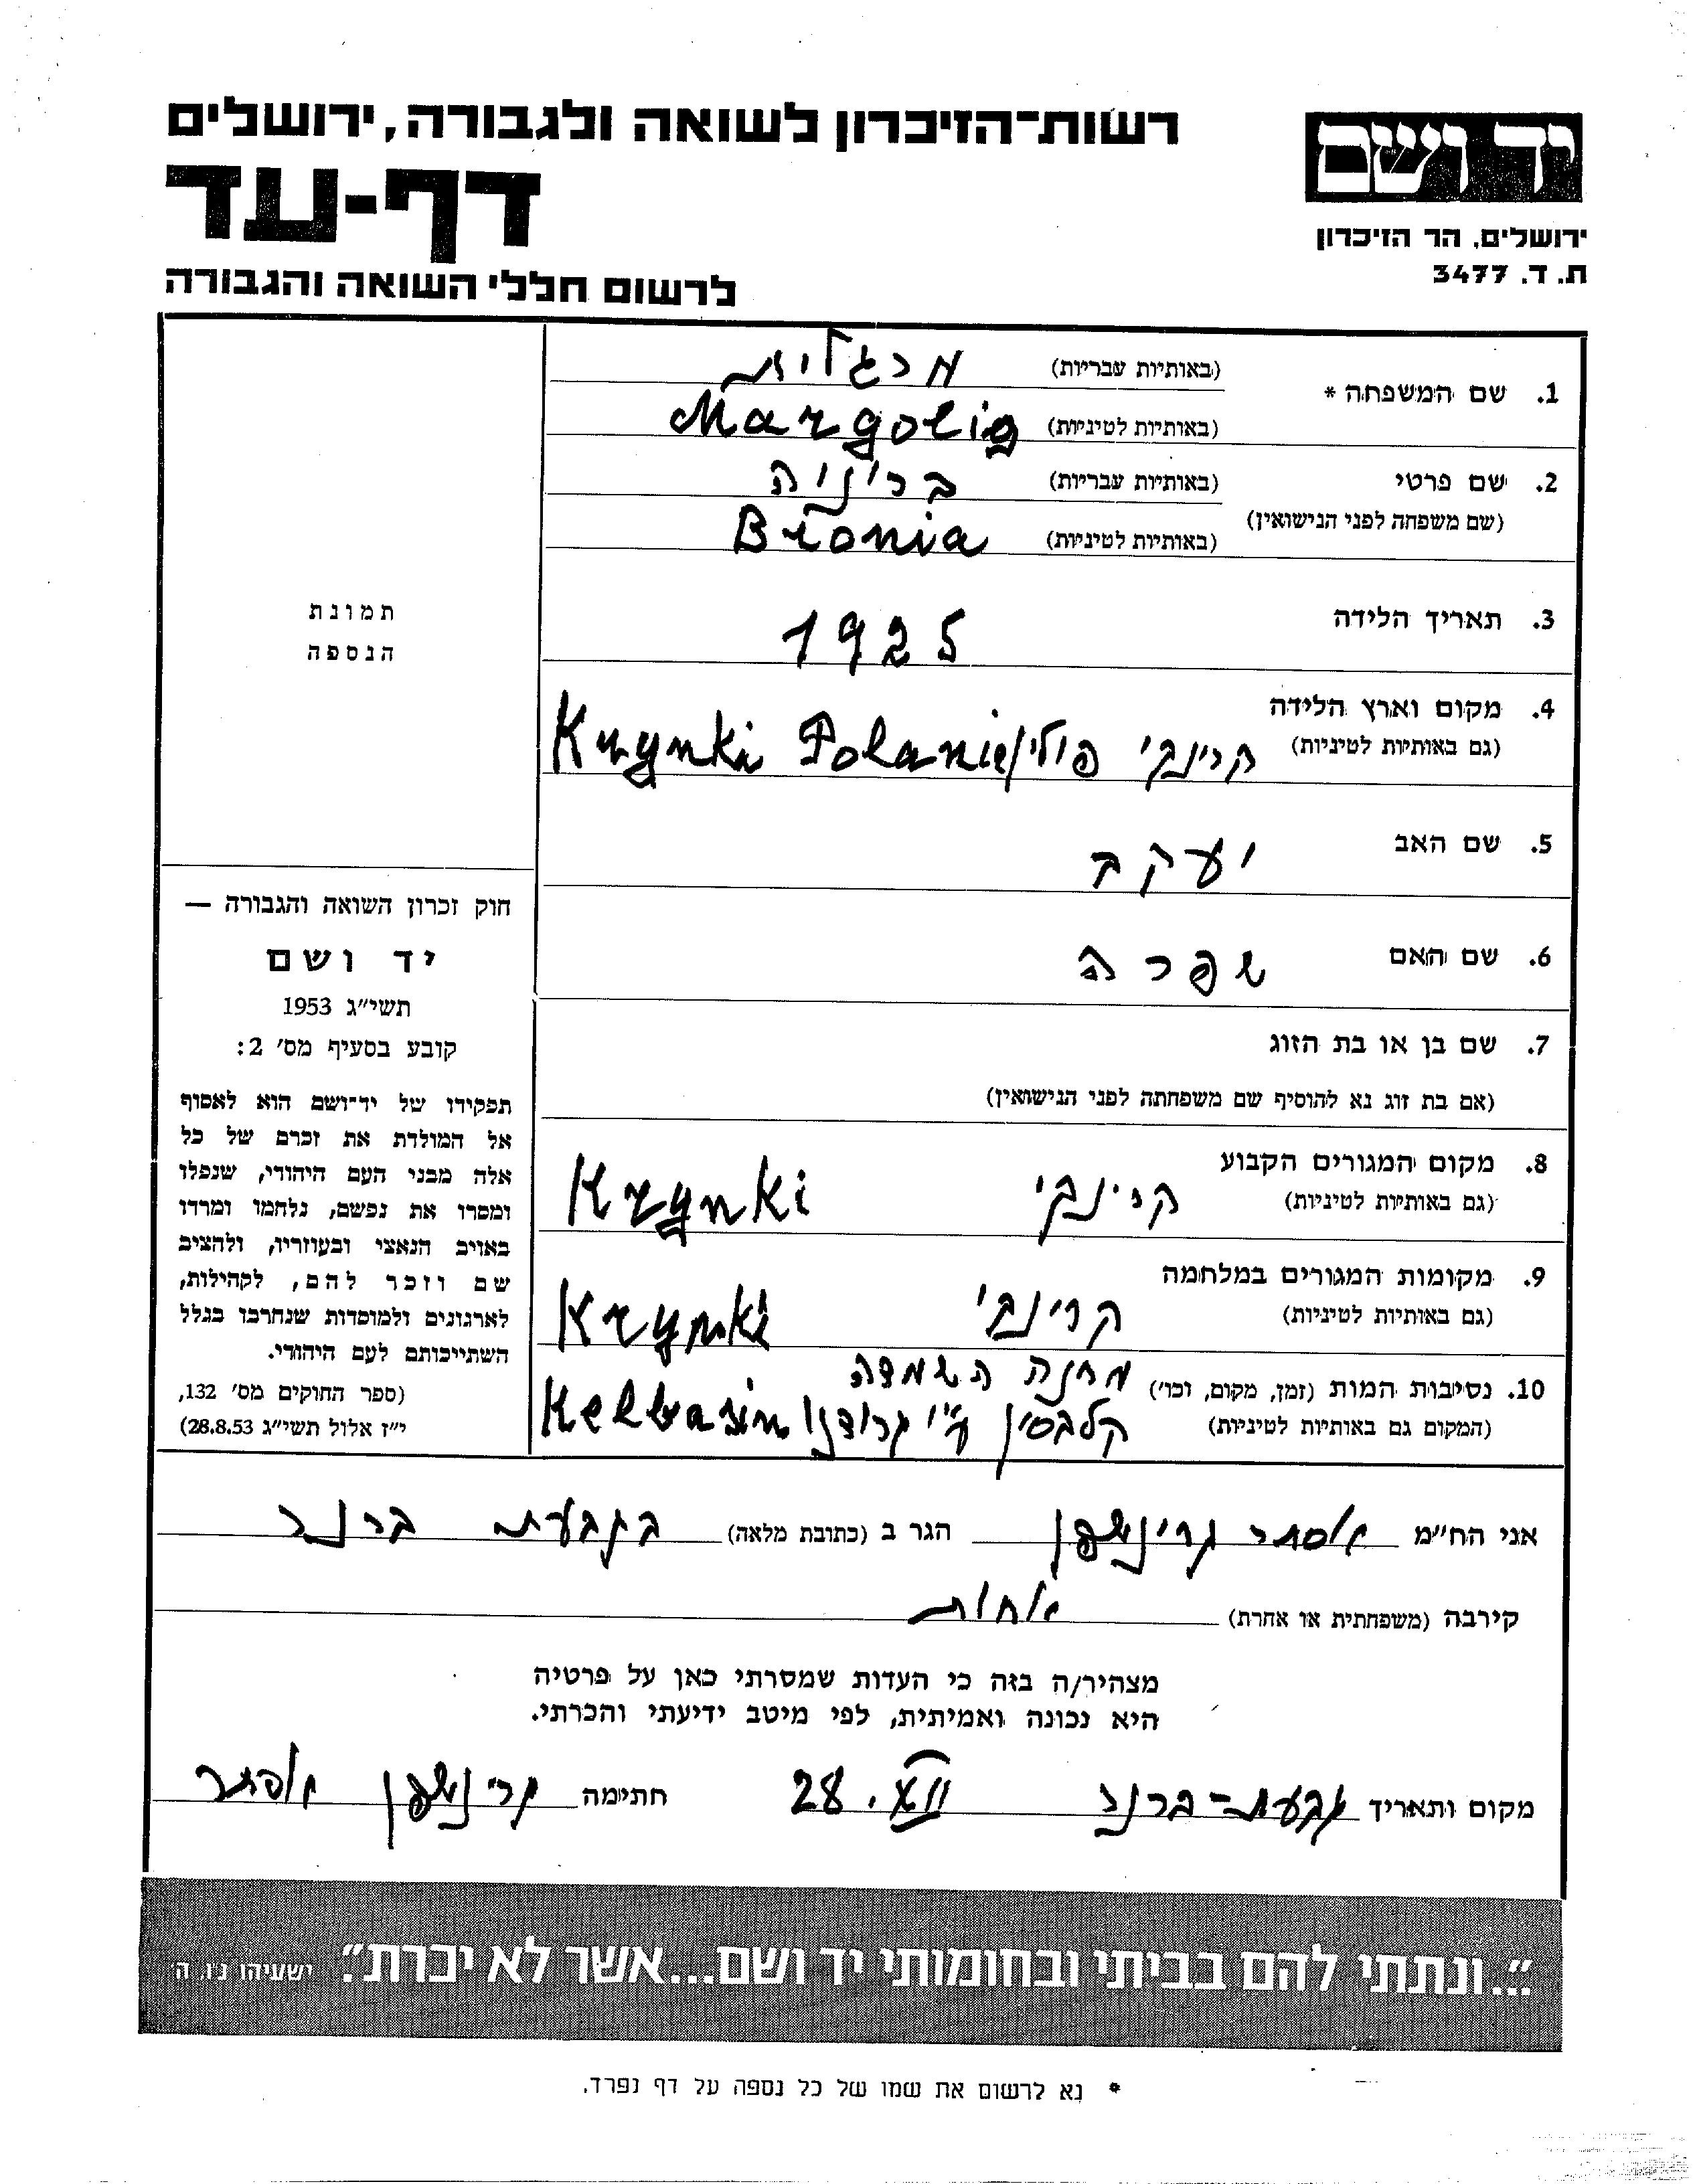 רשות־הזיכרון לשואה ולגבורה, ירושלים
דף-עד
לרשום חללי השואה והגבורה
יד ושם
ירושלים, הר הזיכרון
ת. ד. 3477
1. שם המשפחה * (באותיות עבריות) מרגלית
(באותיות לטיניות) Margolis
2. שם פרטי (באותיות עבריות) ברוניה
(שם משפחה לפני הנישואין) (באותיות לטיניות) Bronia
3. תאריך הלידה 1925
4. מקום וארץ הלידה
(גם באותיות לטיניות) קרינקי פולין Krynki Polanie
5. שם האב יעקב
6. שם האם שפרה
7. שם בן או בת הזוג
(אם בת זוג נא להוסיף שם משפחתה לפני הנישואין)
8. מקום המגורים הקבוע
(גם באותיות לטיניות) קרינקי Krynki
9. מקומות המגורים במלחמה
(גם באותיות לטיניות) קרינקי Krynki
10. נסיבות המות (זמן, מקום, וכו') מחנה השמדה
(המקום גם באותיות לטיניות) קלבסין ע"י גרודנו Kelbasin
תמונת
הנספה
חוק זכרון השואה והגבורה —
יד ושם
תשי"ג 1953
קובע בסעיף מס' 2:
תפקידו של יד־ושם הוא לאסוף
אל המולדת את זכרם של כל
אלה מבני העם היהודי, שנפלו
ומסרו את נפשם, נלחמו ומרדו
באויב הנאצי ובעוזריו, ולהציב
שם וזכר להם, לקהילות,
לארגונים ולמוסדות שנחרבו בגלל
השתייכותם לעם היהודי.
(ספר החוקים מס' 132,
י"ז אלול תשי"ג 28.8.53)
אני הח"מ אסתר גרינשפן הגר ב (כתובת מלאה) בגבעת ברנר
קירבה (משפחתית או אחרת) אחות
מצהיר/ה בזה כי העדות שמסרתי כאן על פרטיה
היא נכונה ואמיתית, לפי מיטב ידיעתי והכרתי.
מקום ותאריך גבעת-ברנר 28.XII חתימה גרינשפן אסתר
"...ונתתי להם בביתי ובחומותי יד ושם...אשר לא יכרת". ישעיהו נ"ו, ה'
* נא לרשום את שמו של כל נספה על דף נפרד.